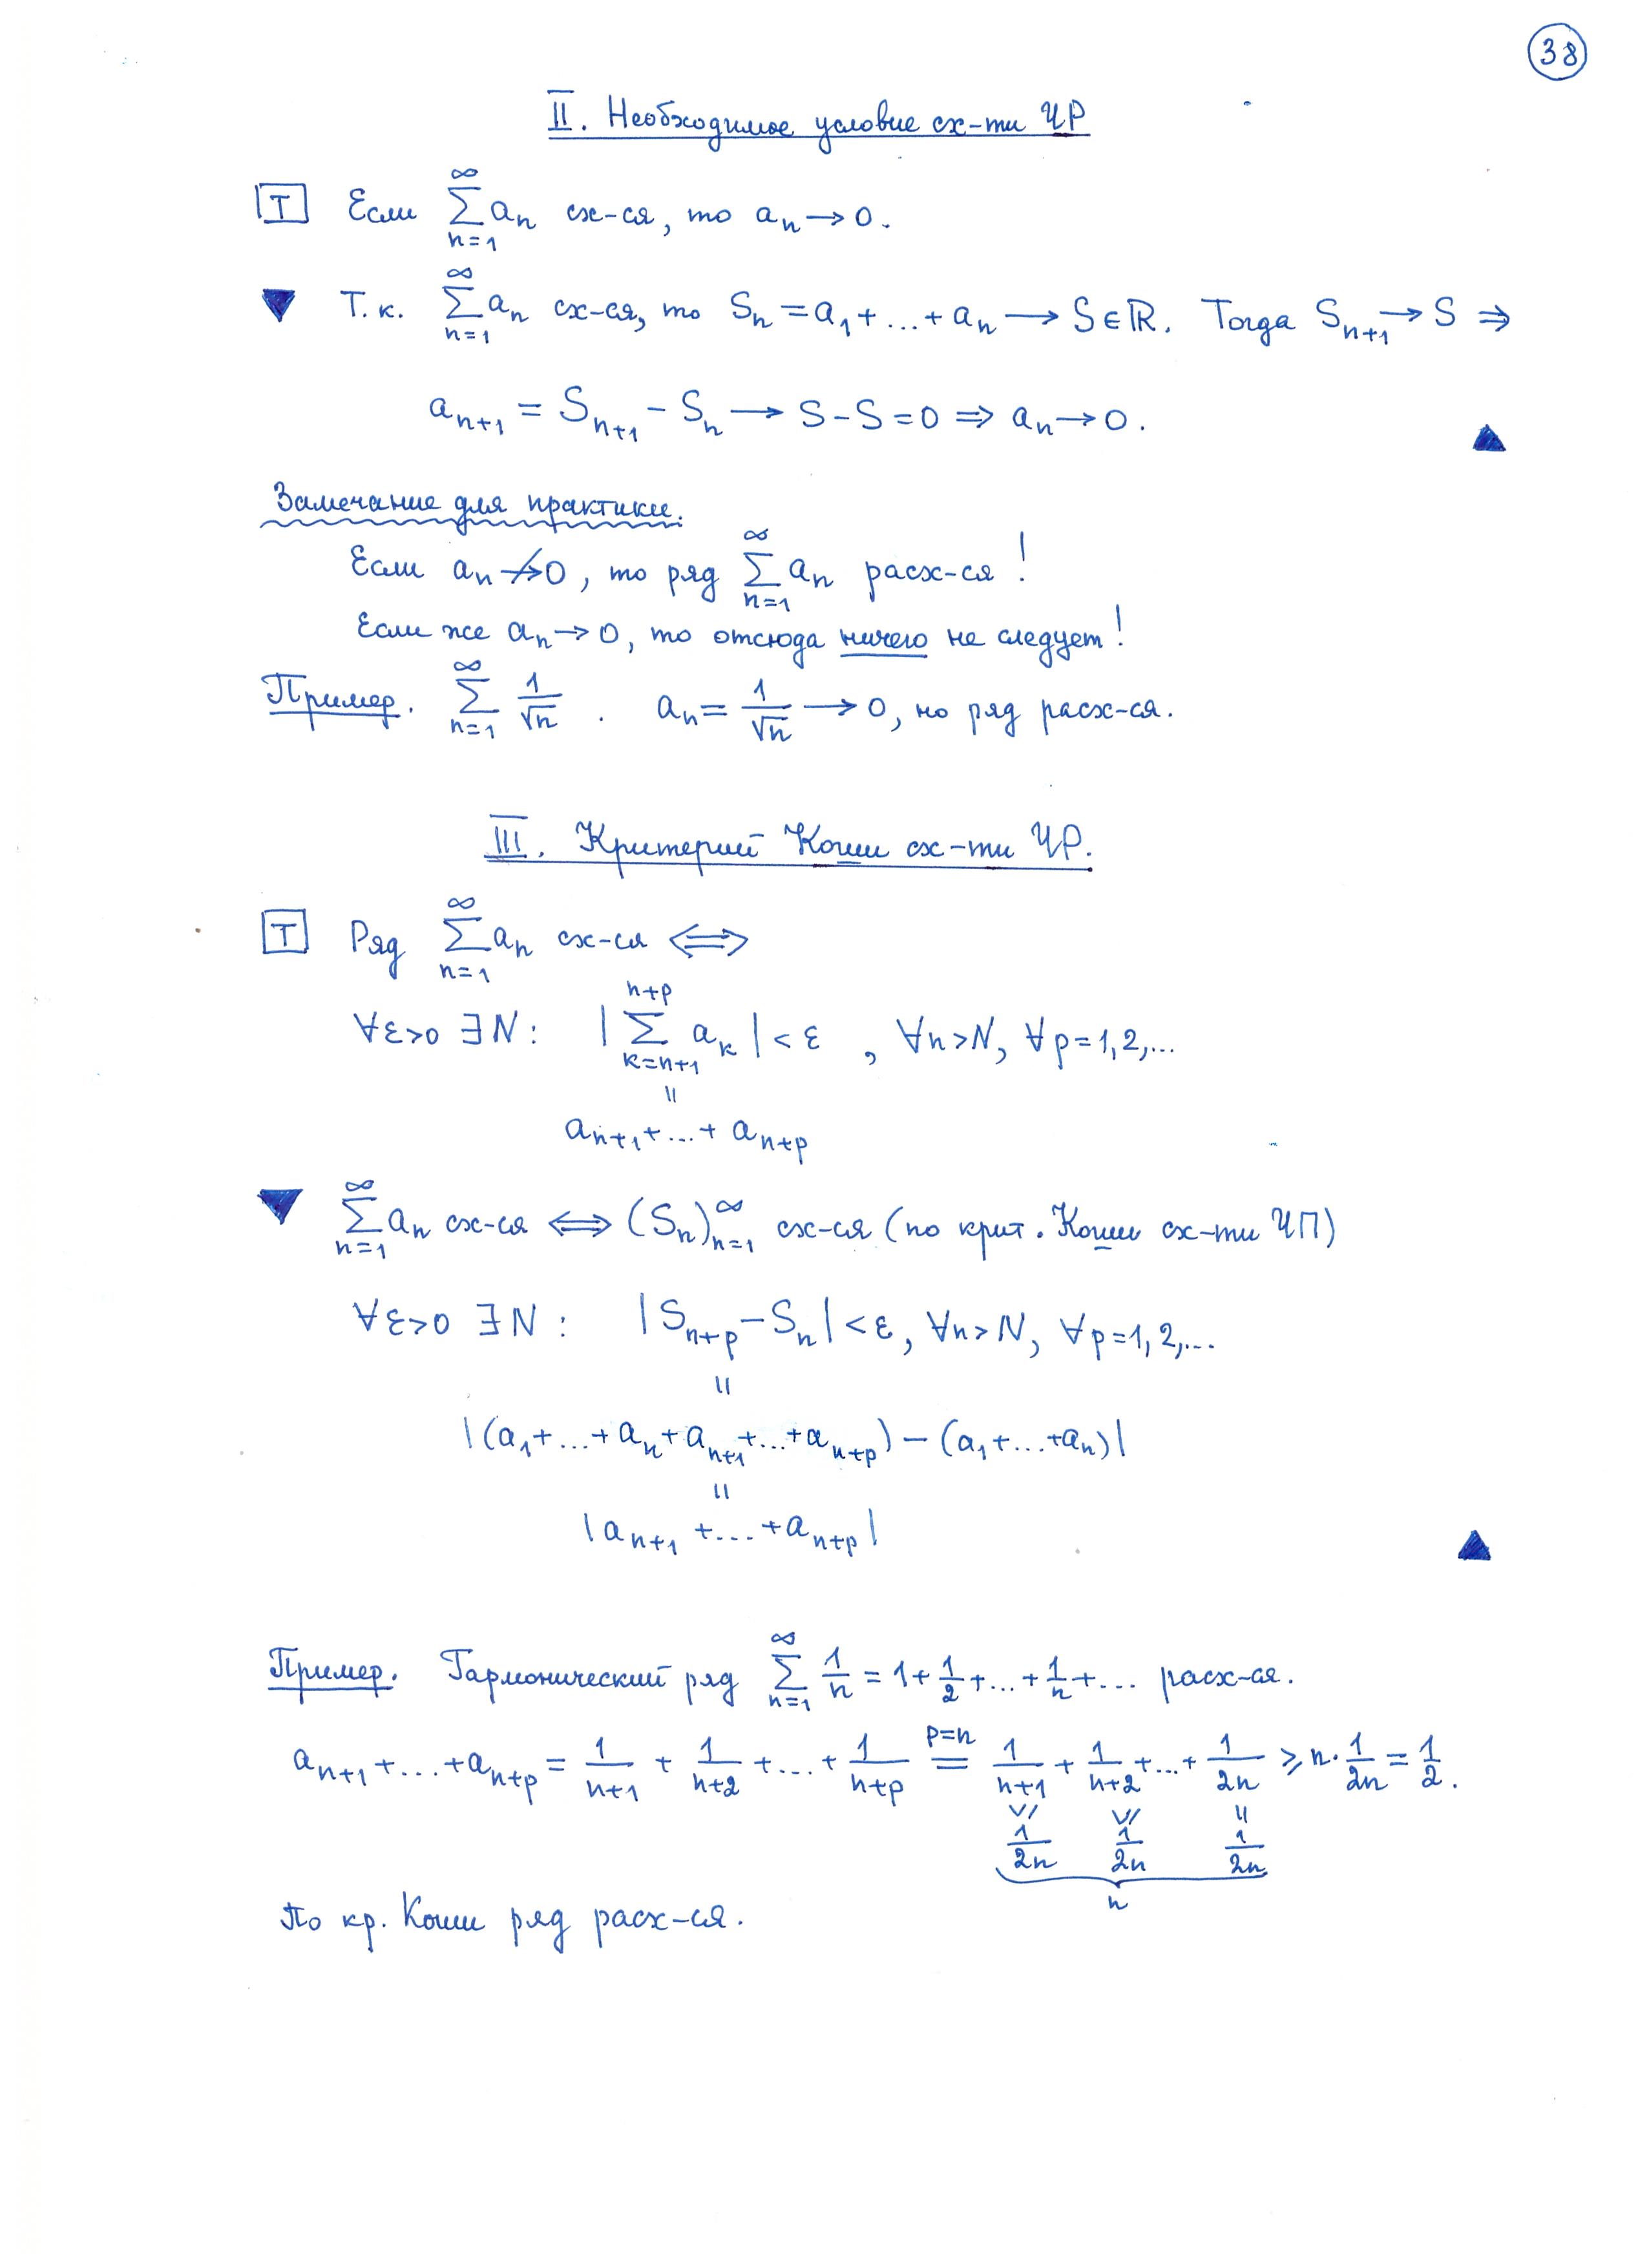 38
II. Необходимое условие сх-ти ЧР
T Если ∑_{n=1}^{∞} a_n сх-ся, то a_n → 0.
▼ Т.к. ∑_{n=1}^{∞} a_n сх-ся, то S_n = a_1 + ... + a_n → S ∈ ℝ. Тогда S_{n+1} → S ⇒
a_{n+1} = S_{n+1} - S_n → S - S = 0 ⇒ a_n → 0. ▲
Замечание для практики.
Если a_n ↛ 0, то ряд ∑_{n=1}^{∞} a_n расх-ся!
Если же a_n → 0, то отсюда ничего не следует!
Пример. ∑_{n=1}^{∞} 1/√n . a_n = 1/√n → 0, но ряд расх-ся.
III. Критерий Коши сх-ти ЧР.
T Ряд ∑_{n=1}^{∞} a_n сх-ся ⟺
∀ε>0 ∃N: |∑_{k=n+1}^{n+p} a_k| < ε , ∀n>N, ∀p=1,2,...
=
a_{n+1} + ... + a_{n+p}
▼ ∑_{n=1}^{∞} a_n сх-ся ⟺ (S_n)_{n=1}^{∞} сх-ся (по крит. Коши сх-ти ЧП)
∀ε>0 ∃N: |S_{n+p} - S_n| < ε, ∀n>N, ∀p=1,2,...
=
|(a_1 + ... + a_n + a_{n+1} + ... + a_{n+p}) - (a_1 + ... + a_n)|
=
|a_{n+1} + ... + a_{n+p}| ▲
Пример. Гармонический ряд ∑_{n=1}^{∞} 1/n = 1 + 1/2 + ... + 1/n + ... расх-ся.
a_{n+1} + ... + a_{n+p} = 1/(n+1) + 1/(n+2) + ... + 1/(n+p) =^{p=n} 1/(n+1) + 1/(n+2) + ... + 1/2n ≥ n · 1/2n = 1/2.
∨/ ∨/ =
1/2n 1/2n 1/2n
n
По кр. Коши ряд расх-ся.